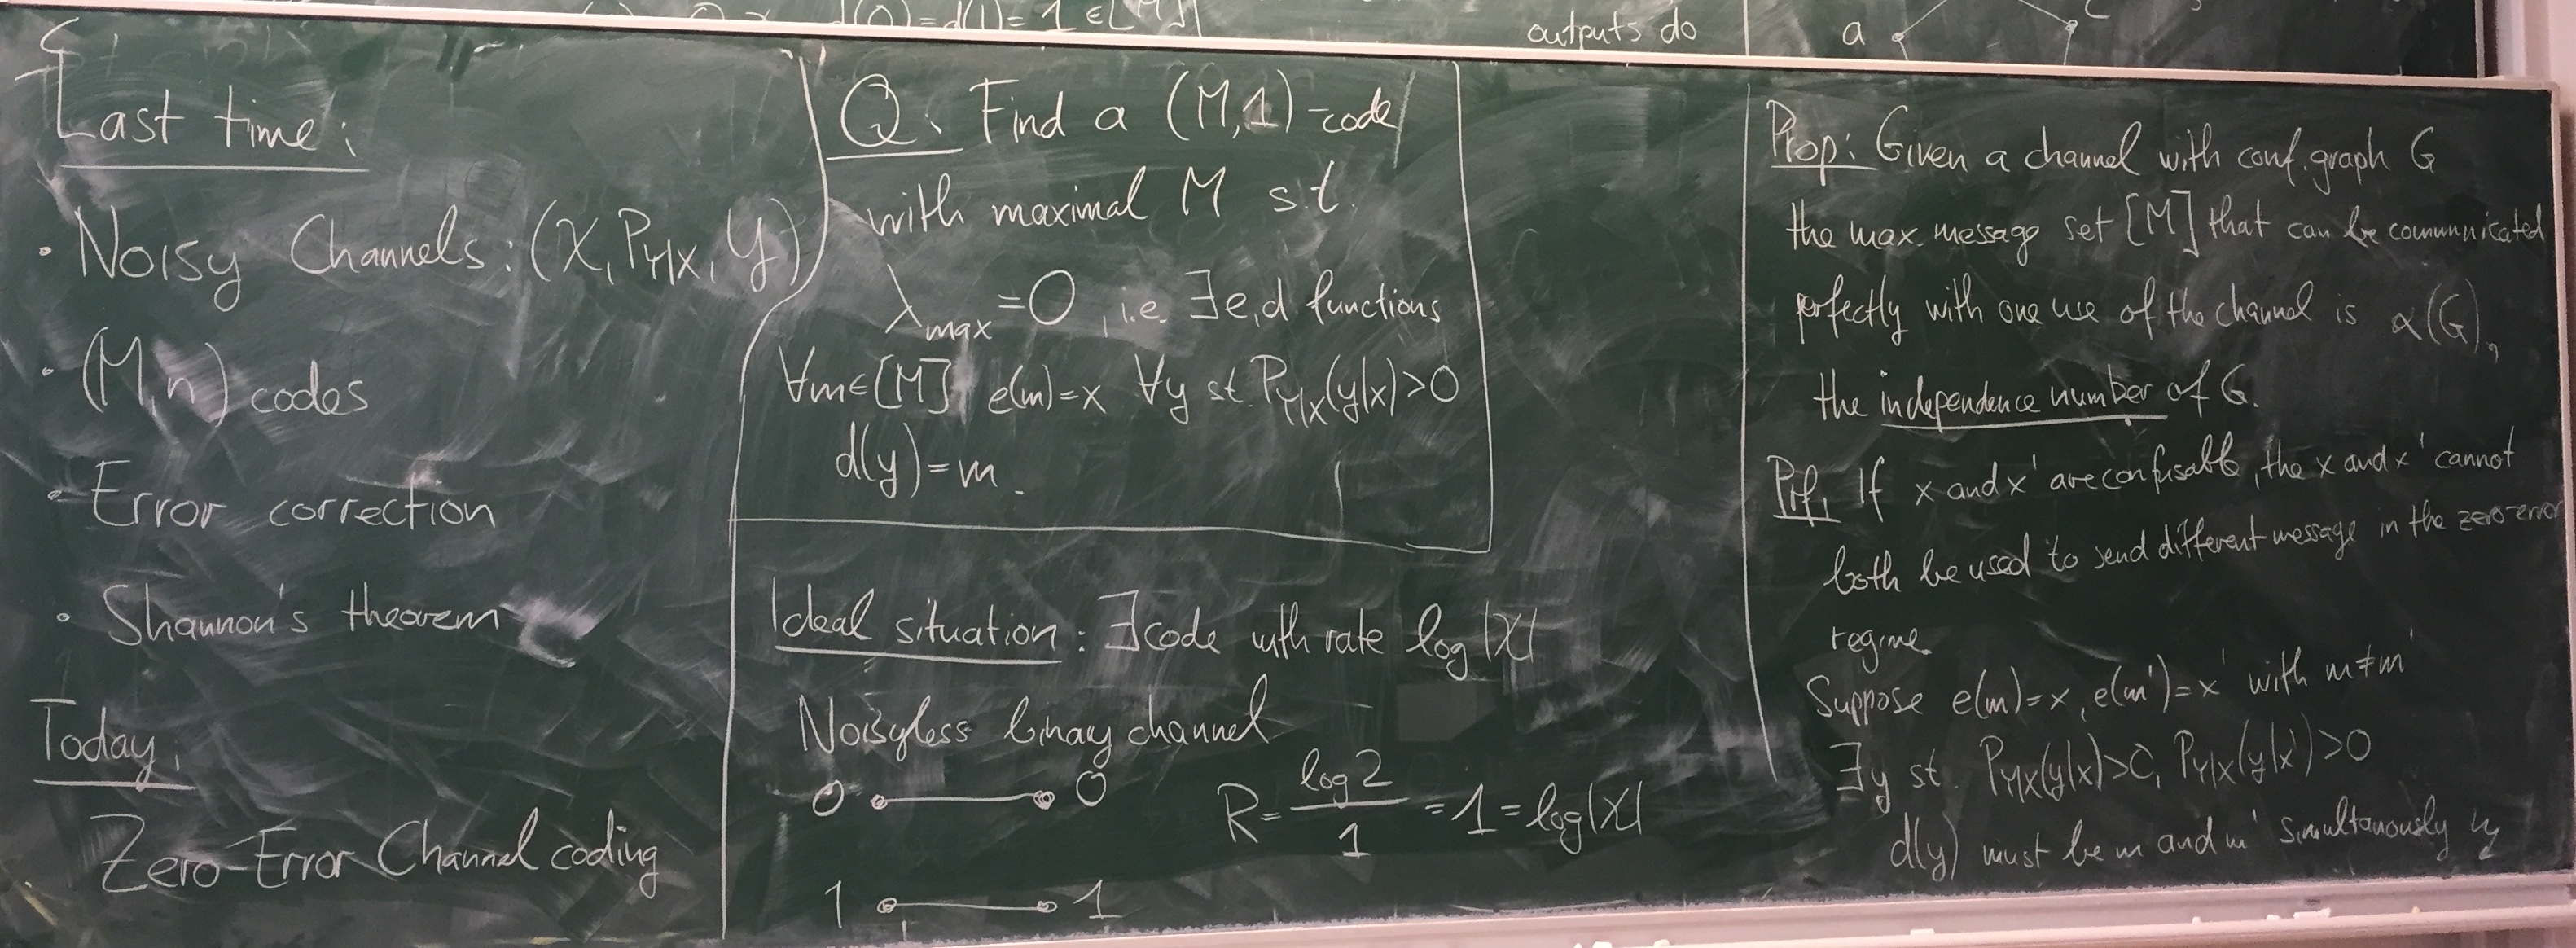 d(0)=d(1)=1 ∈[M]
outputs do
a
c
Last time:
· Noisy Channels: (X, P_{Y|X}, Y)
· (M,n) codes
· Error correction
· Shannon's theorem
Today:
Zero-Error Channel coding
Q: Find a (M,1)-code
with maximal M s.t.
λ_max=0, i.e. ∃e,d functions
∀m∈[M] e(m)=x ∀y st. P_{Y|X}(y|x)>0
d(y)=m.
Ideal situation: ∃code with rate log|X|
Noisyless binary channel
0 0
R= log 2 / 1 = 1 = log|X|
1 1
Prop: Given a channel with conf. graph G
the max. message set [M] that can be communicated
perfectly with one use of the channel is α(G),
the independence number of G.
Prf: If x and x' are confusable, the x and x' cannot
both be used to send different message in the zero-error
regime.
Suppose e(m)=x, e(m')=x' with m≠m'
∃y st. P_{Y|X}(y|x)>0, P_{Y|X}(y|x')>0
d(y) must be m and m' simultanously ↯